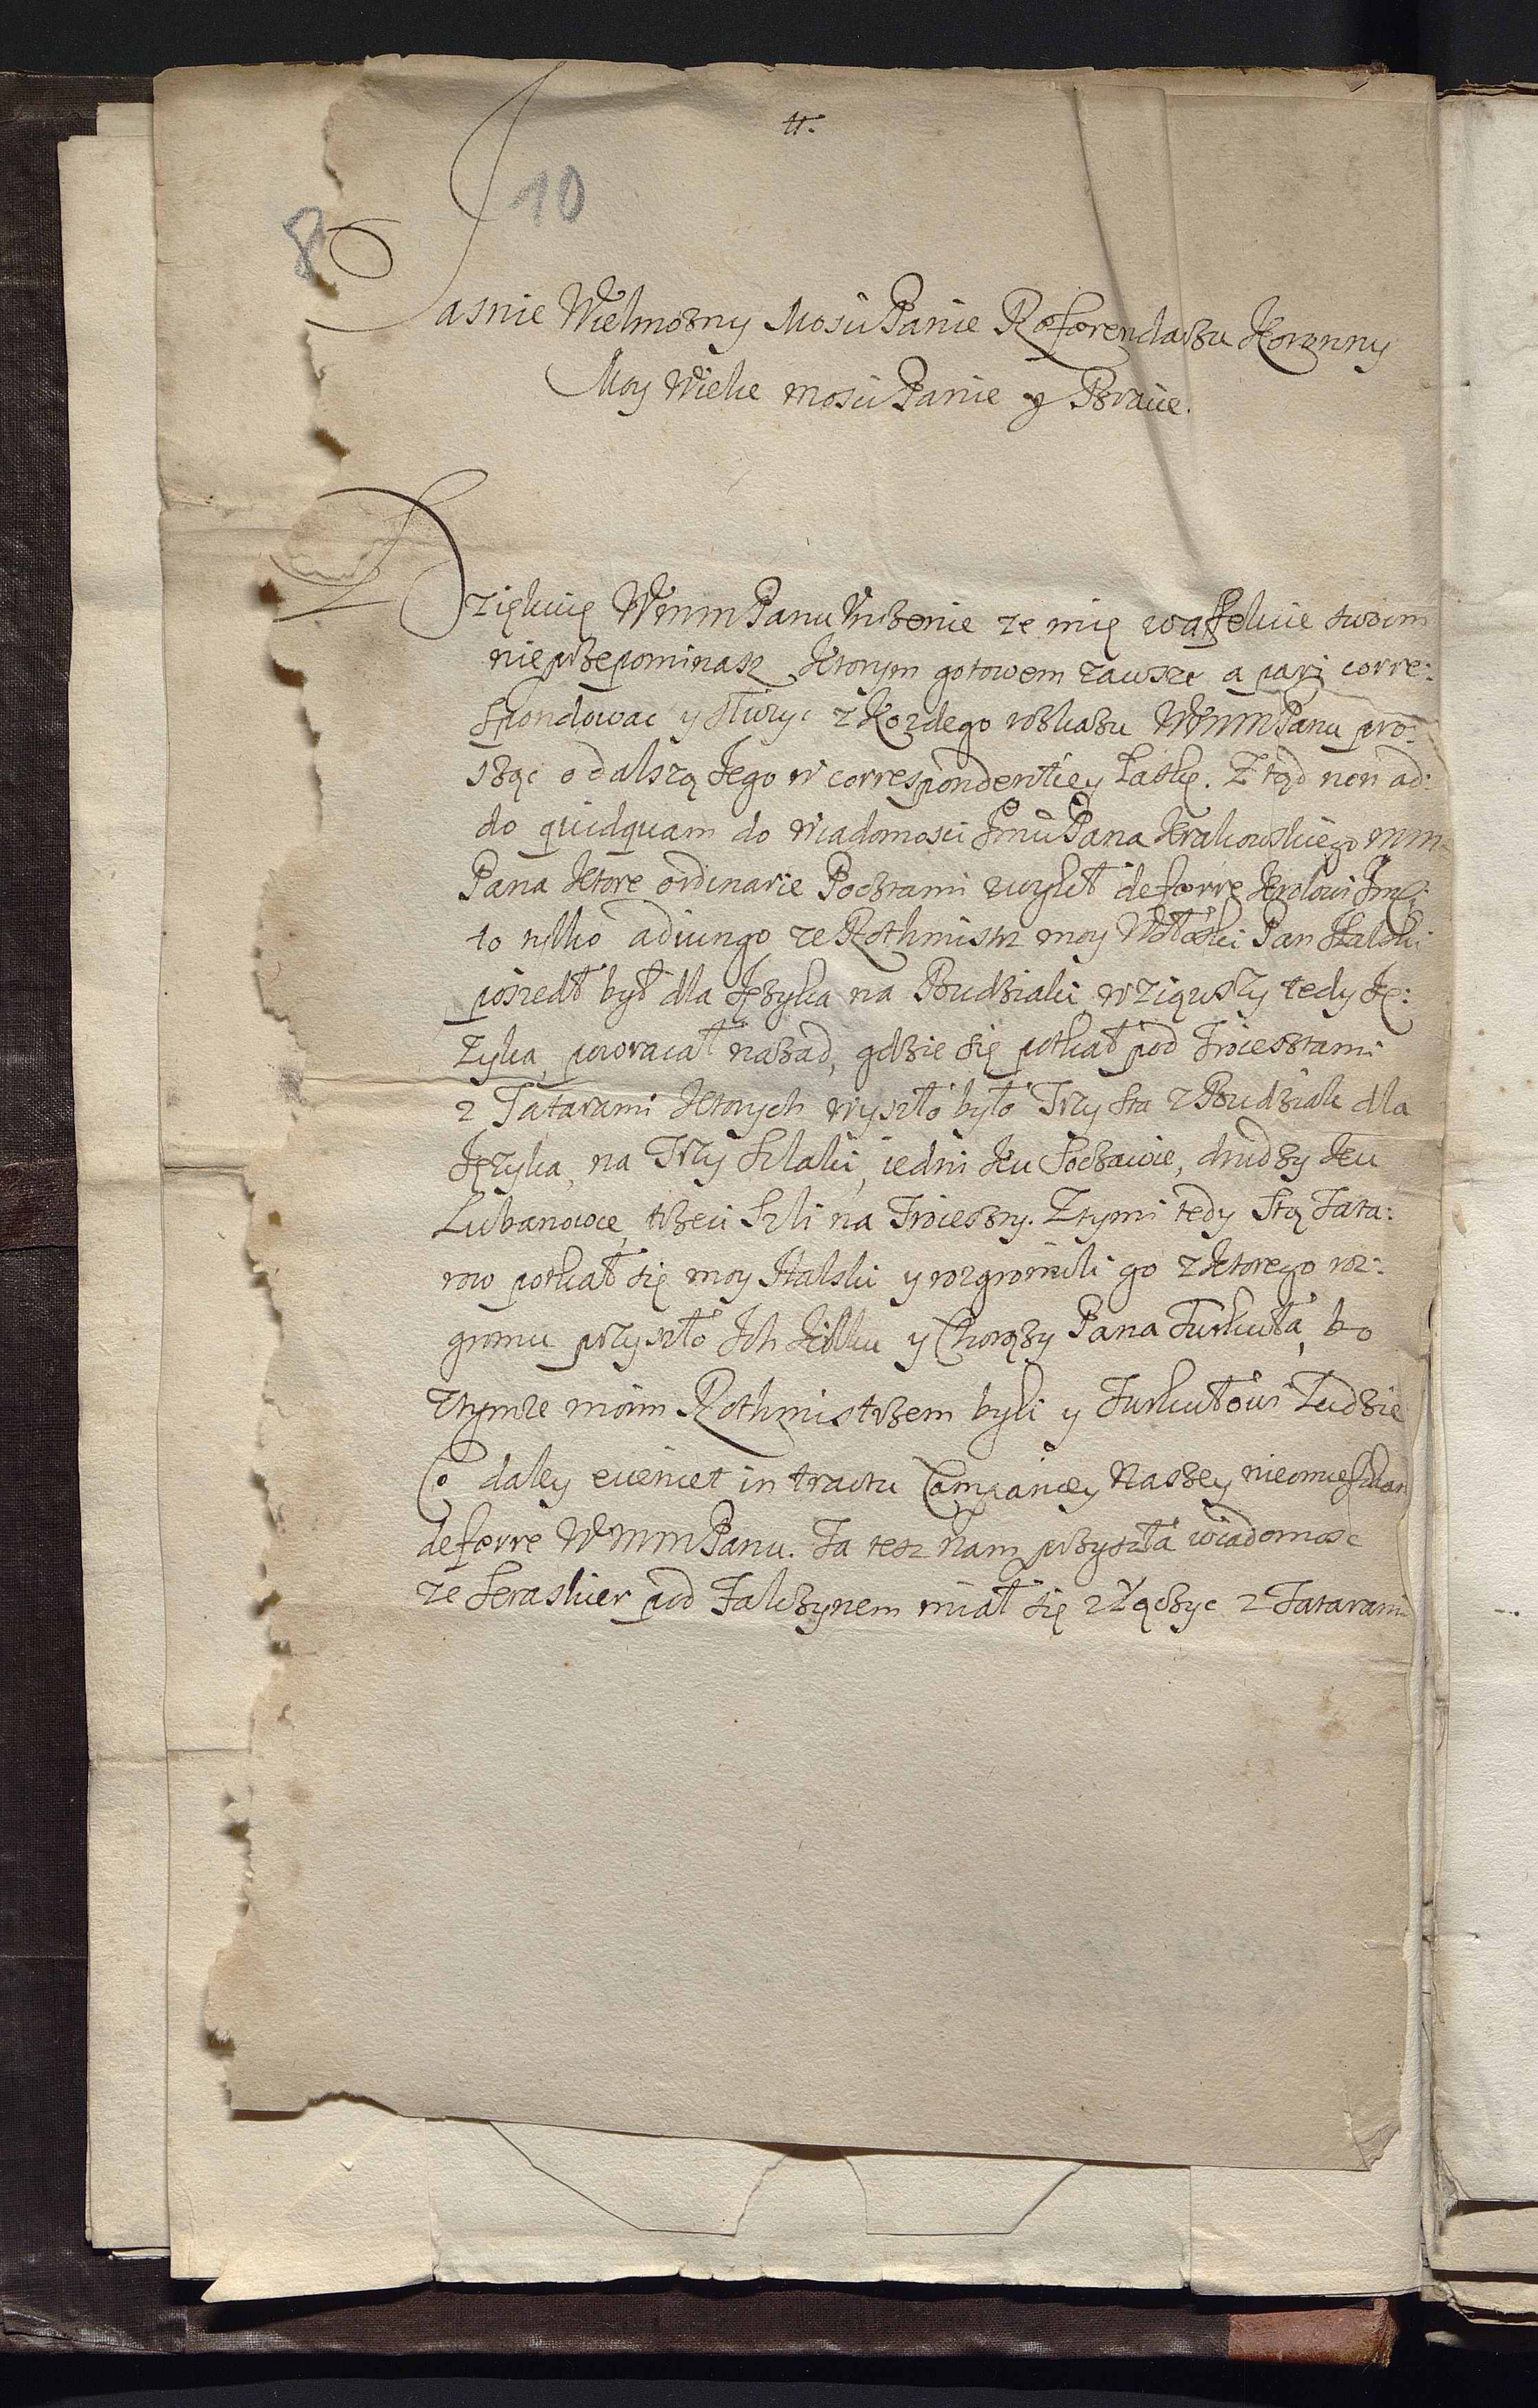 11.
10
8
Jasnie Wielmozny Mosci Panie Referendarzu Koronny
Moy Wielce mosci Panie y Bracie.
Dziękuię WmmPanu Uniżenie ze mię w affekcie swoim
nieprzepominasz, ktorym gotowem zawsze a pari corre:
spondowac y słuzyc z kozdego roskazu WmmPanu pro:
sząc o dalszą Jego w correspondentiey Łaskę. Ztąd non ad:
do quidquam do wiadomosci Jmci Pana Krakowskiego mm
Pana ktore ordinarie Pocztami zwykł deferre Krolowi Jmci
to tylko adiungo ze Rothmistrz moy Wołoski Pan Skalski
poszedł był dla Języka na Budziaki, wziąwszy tedy Ję:
zyka, powracał nazad, gdzie się potkał pod
z Tatarami ktorych wyszło było Trzysta z Budziak dla
Języka, na Trzy Szlaki, iedni ku Soczawie, drudzy ku
Lubanowce, trzeci szli na Trociesztry. Ztymi tedy Stą Tata:
row potkał się moy Skalski y rozgromili go z ktorego roz:
gromu przyszło Ich kilku y Chorązy Pana Turkuła, bo
ztymze moim Rothmistrzem byli y Turkułowi Ludzie
Co daley eveniet in tractu Campaniey Naszey nieomieszkam
deferre WmmPanu. Ta tesz nam przyszła wiadomosc
ze Seraskier pod Falczynem miał się złączyc z Tatarami